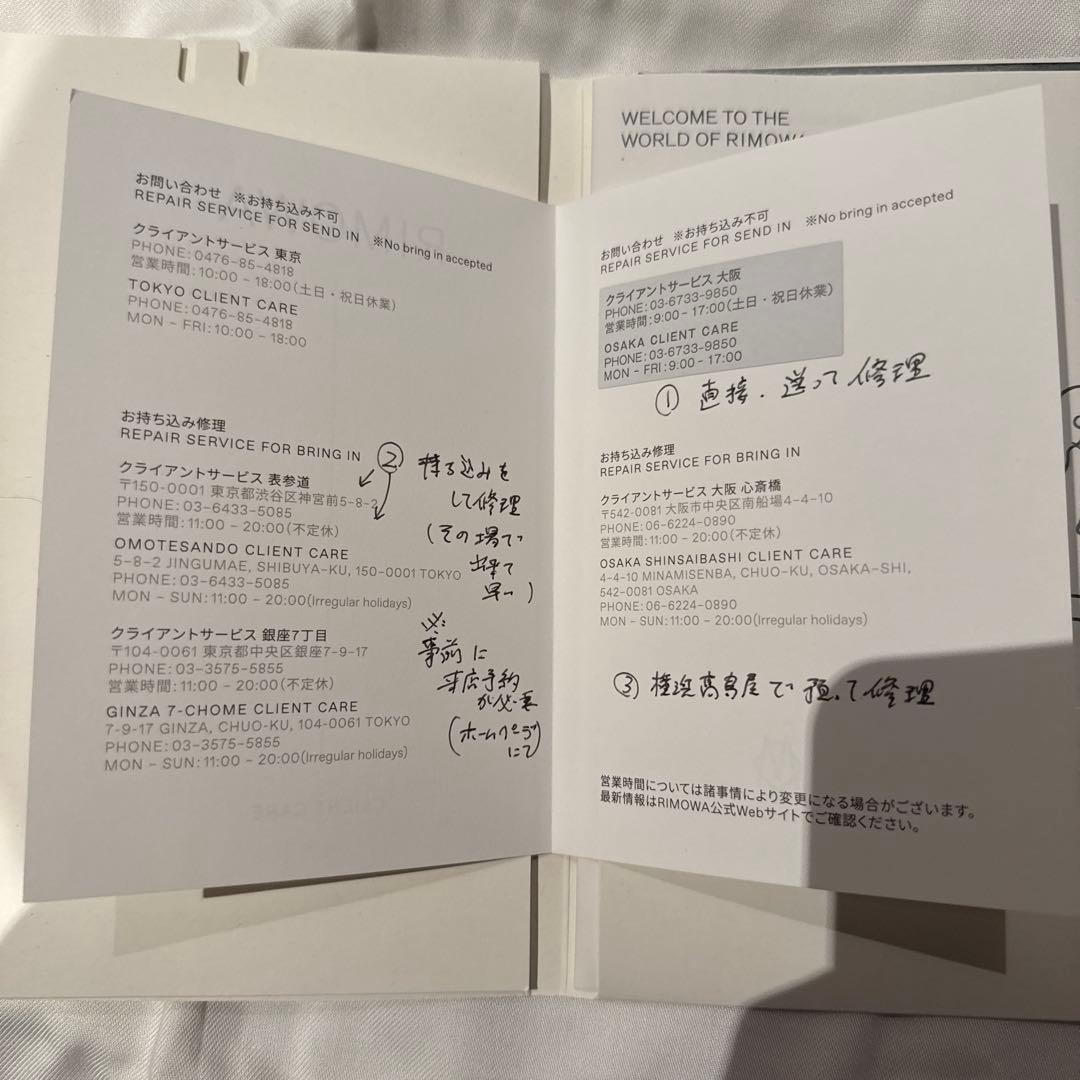 お問い合わせ ※お持ち込み不可
REPAIR SERVICE FOR SEND IN ※No bring in accepted
クライアントサービス 東京
PHONE: 0476-85-4818
営業時間: 10:00 - 18:00(土日・祝日休業)
TOKYO CLIENT CARE
PHONE: 0476-85-4818
MON - FRI: 10:00 - 18:00
お持ち込み修理
REPAIR SERVICE FOR BRING IN
クライアントサービス 表参道
〒150-0001 東京都渋谷区神宮前5-8-2
PHONE: 03-6433-5085
営業時間: 11:00 - 20:00(不定休)
OMOTESANDO CLIENT CARE
5-8-2 JINGUMAE, SHIBUYA-KU, 150-0001 TOKYO
PHONE: 03-6433-5085
MON - SUN: 11:00 - 20:00(Irregular holidays)
クライアントサービス 銀座7丁目
〒104-0061 東京都中央区銀座7-9-17
PHONE: 03-3575-5855
営業時間: 11:00 - 20:00(不定休)
GINZA 7-CHOME CLIENT CARE
7-9-17 GINZA, CHUO-KU, 104-0061 TOKYO
PHONE: 03-3575-5855
MON - SUN: 11:00 - 20:00(Irregular holidays)
② 持ち込みを
して修理
(その場で
出来て
早い)
※
事前に
来店予約
が必要
(ホームページ
にて)
WELCOME TO THE
WORLD OF RIMOWA
お問い合わせ ※お持ち込み不可
REPAIR SERVICE FOR SEND IN ※No bring in accepted
クライアントサービス 大阪
PHONE: 03-6733-9850
営業時間: 9:00 - 17:00(土日・祝日休業)
OSAKA CLIENT CARE
PHONE: 03-6733-9850
MON - FRI: 9:00 - 17:00
① 直接、送って修理
お持ち込み修理
REPAIR SERVICE FOR BRING IN
クライアントサービス 大阪 心斎橋
〒542-0081 大阪市中央区南船場4-4-10
PHONE: 06-6224-0890
営業時間: 11:00 - 20:00(不定休)
OSAKA SHINSAIBASHI CLIENT CARE
4-4-10 MINAMISENBA, CHUO-KU, OSAKA-SHI,
542-0081 OSAKA
PHONE: 06-6224-0890
MON - SUN: 11:00 - 20:00(Irregular holidays)
③ 横浜高島屋で預って修理
営業時間については諸事情により変更になる場合がございます。
最新情報はRIMOWA公式Webサイトでご確認ください。